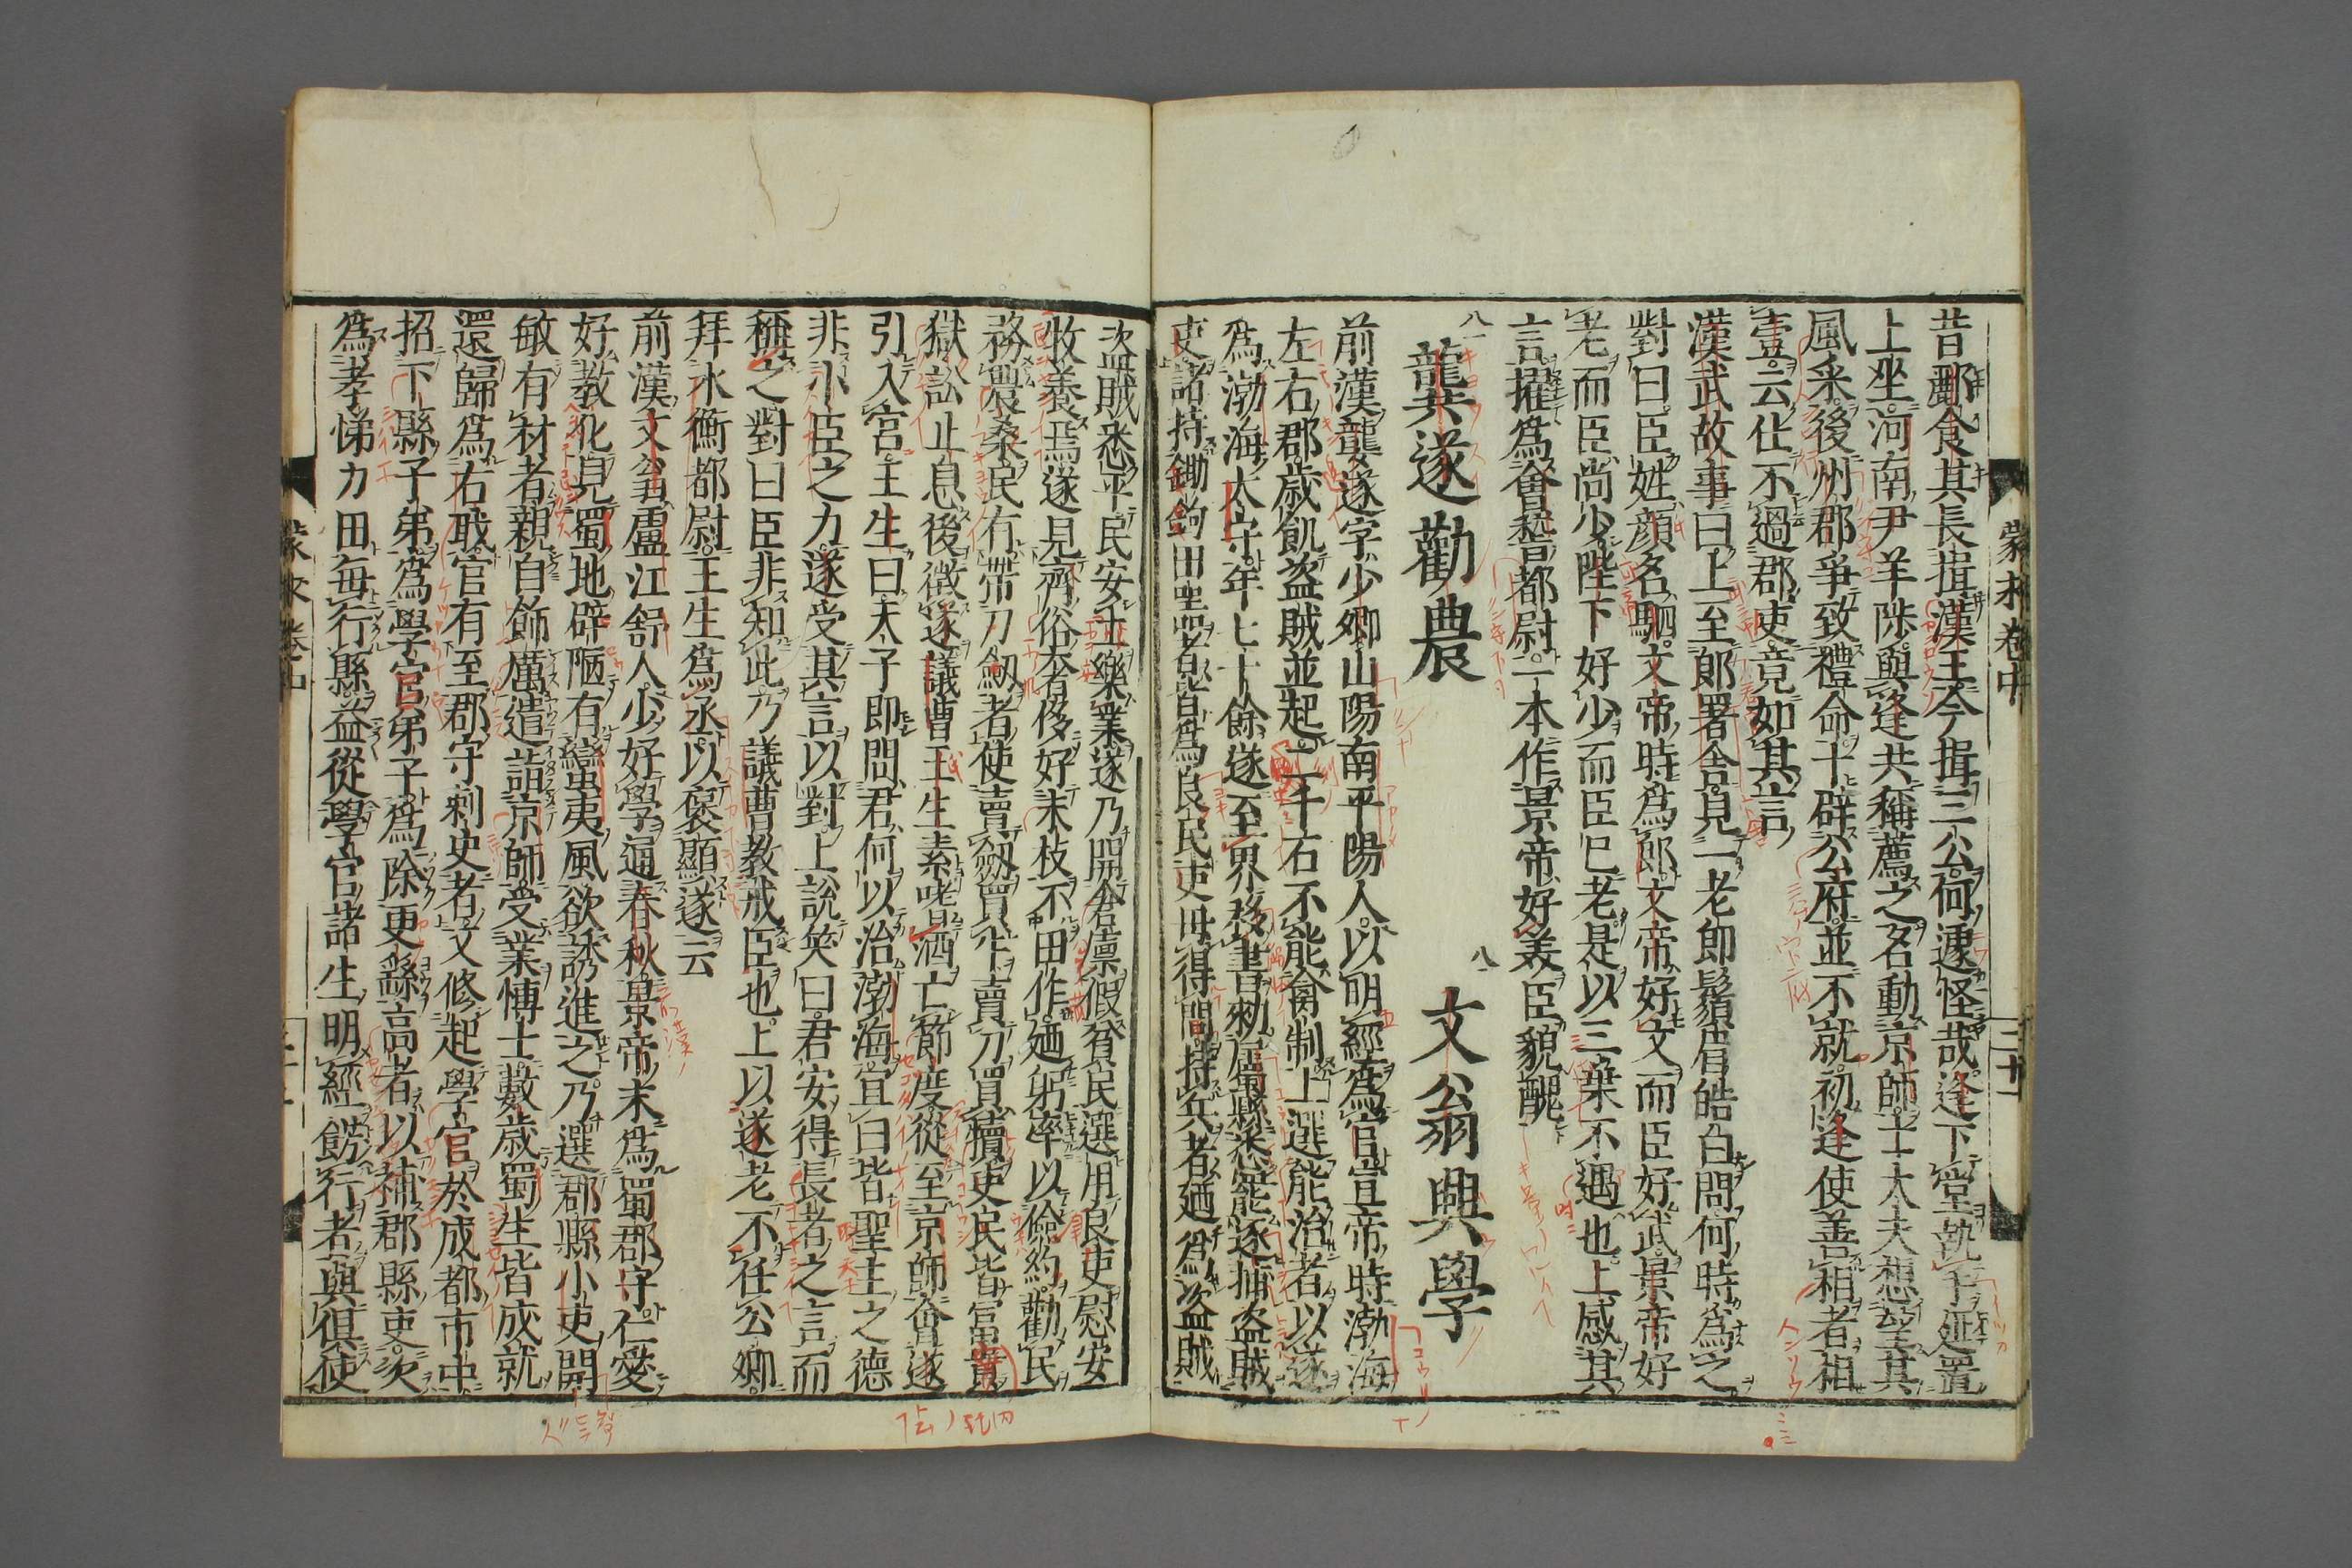 昔酈食其長揖漢王今揖三公何遽怪哉逢下堂執手延置
上坐河南尹羊陟與逢共稱薦之名動京師士大夫想望其
風采後州郡爭致禮命十辟公府並不就初逢使善相者相
壹云仕不過郡吏竟如其言
漢武故事曰上至郎署舍見一老郎鬚眉皓白問何時爲之
對曰臣姓顔名駟文帝時爲郎文帝好文而臣好武景帝好
老而臣尚少陛下好少而臣已老是以三葉不遇也上感其
言擢爲會稽都尉一本作景帝好美臣貌醜
龔遂勸農 文翁興學
前漢龔遂字少卿山陽南平陽人以明經爲官宣帝時渤海
左右郡歳飢盗賊並起二千石不能禽制上選能治者以遂
爲渤海太守年七十餘遂至界移書勅屬縣悉罷逐捕盗賊
吏諸持鋤鉤田噐者皆爲良民吏毋得問持兵者廼爲盗賊
盗賊悉平民安土樂業遂乃開倉廩假貧民選用良吏慰安
收養焉遂見齊俗奢侈好末枝不田作廼躬率以儉約勸民
務農桑民有帶刀劔者使賣劔買牛賣刀買犢吏民皆富實
獄訟止息後徴遂議曹王生素嗜酒亡節度從至京師會遂
引入宮王生曰天子即問君何以治渤海宜曰皆聖主之德
非小臣之力遂受其言以對上說笑曰君安得長者之言而
稱之對曰臣非知此乃議曹教戒臣也上以遂老不任公卿
拜水衡都尉王生爲丞以褒顯遂云
前漢文翁盧江舒人少好學通春秋景帝末爲蜀郡守仁愛
好教化見蜀地辟陋有蠻夷風欲誘進之乃選郡縣小吏開
敏有材者親自飾厲遣詣京師受業愽士數歳蜀生皆成就
還歸爲右職官有至郡守刺史者又修起學官於成都市中
招下縣子弟爲學官弟子爲除更繇高者以補郡縣吏次
爲孝悌力田每行縣益從學官諸生明經飭行者與俱使
蒙求卷中
三十一